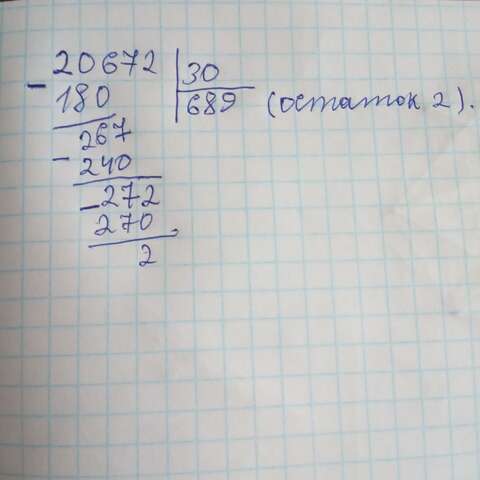 20672 30
- 180 689 (остаток 2).
267
- 240
- 272
270
2